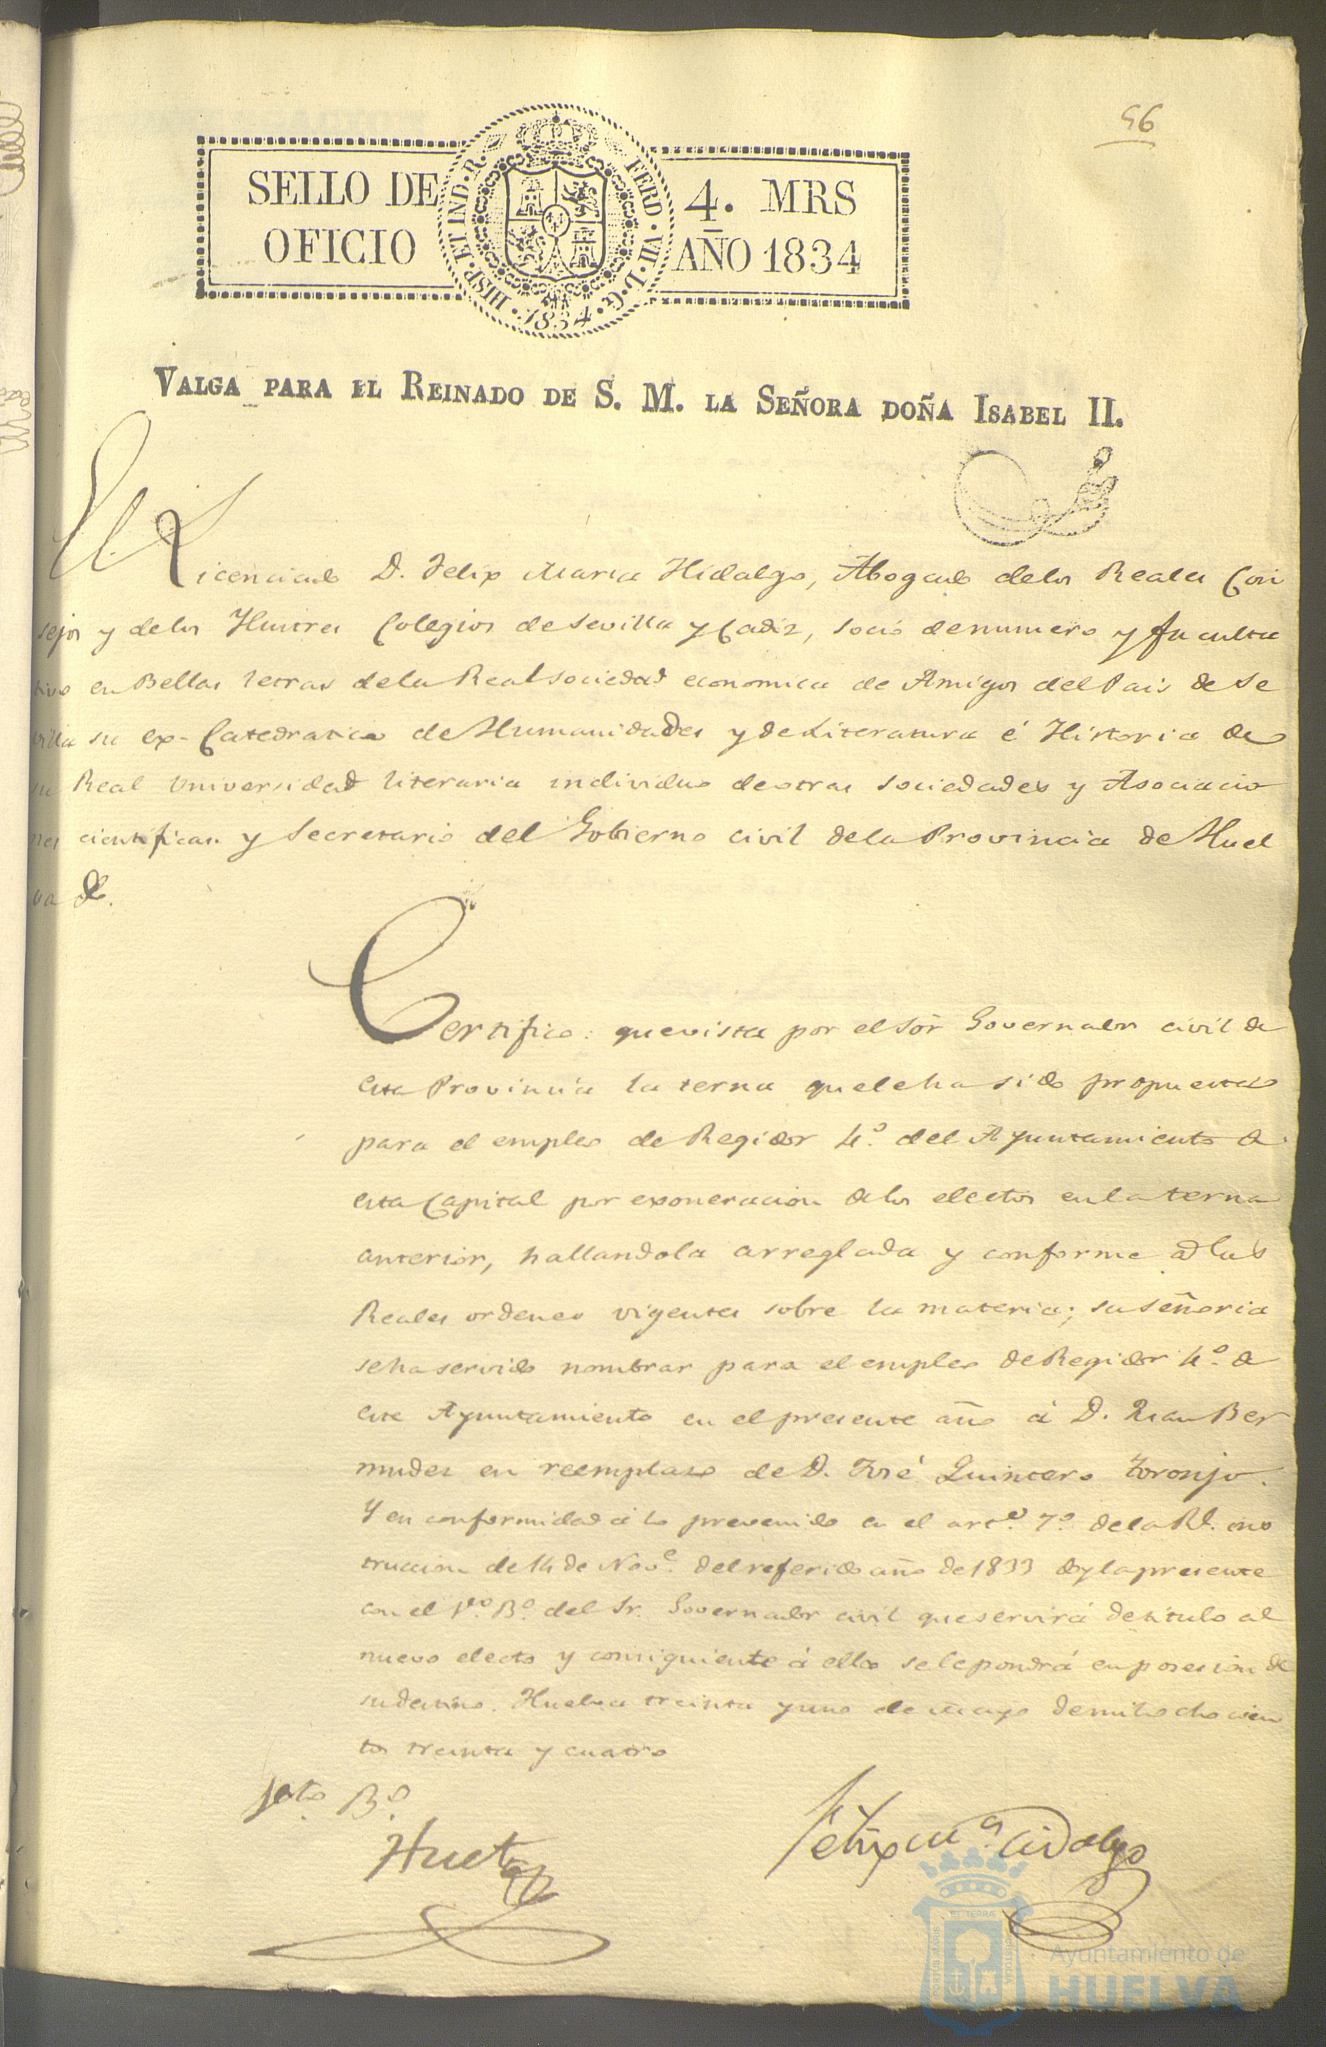 56
SELLO DE OFICIO
HISP. ET IND. R. FERD. VII. D. G. 1834.
4. MRS
AÑO 1834
VALGA PARA EL REINADO DE S. M. LA SEÑORA DOÑA ISABEL II.
El Licenciado D. Felix Maria Hidalgo, Abogado delos Reales Con
sejos y delos Ilustres Colegios de Sevilla y Cadiz, socio denumero y faculta
tivo en Bellas letras dela Real sociedad economica de Amigos del Pais de Se
villa su ex-Catedratico de Humanidades y de Literatura é Historia de
su Real Universidad literaria individuo deotras sociedades y Asociacio
nes cientificas y Secretario del Gobierno civil dela Provincia de Huel
va &.
Certifico: quevista por el Sõr Governador civil de
esta Provincia la terna quelehasido propuesta
para el empleo de Regidor 4.º del Ayuntamiento de
esta Capital por exoneracion delos electos enlaterna
anterior, hallandola arreglada y conforme alas
Reales ordenes vigentes sobre la materia; suseñoria
seha servido nombrar para el empleo deRegidor 4.º de
este Ayuntamiento en el presente año á D. Ber
mudez en reemplazo de D. José Quintero Toronjo.
Y en conformidad á lo prevenido en el artº. 7º. dela Rl. ins
truccion de 14 de Nove. del referido año de 1833 doy lapresente
con el Vto. Bº. del Sr. Governador civil queservirá detitulo al
nuevo electo y consiguiente á ello selepondrá enposesion de
sudestino. Huelva treinta y uno de Mayo demilochocien
tos treinta y cuatro
Vto. Bº.
Huet
Felix Mª. Hidalgo
Ayuntamiento de
HUELVA